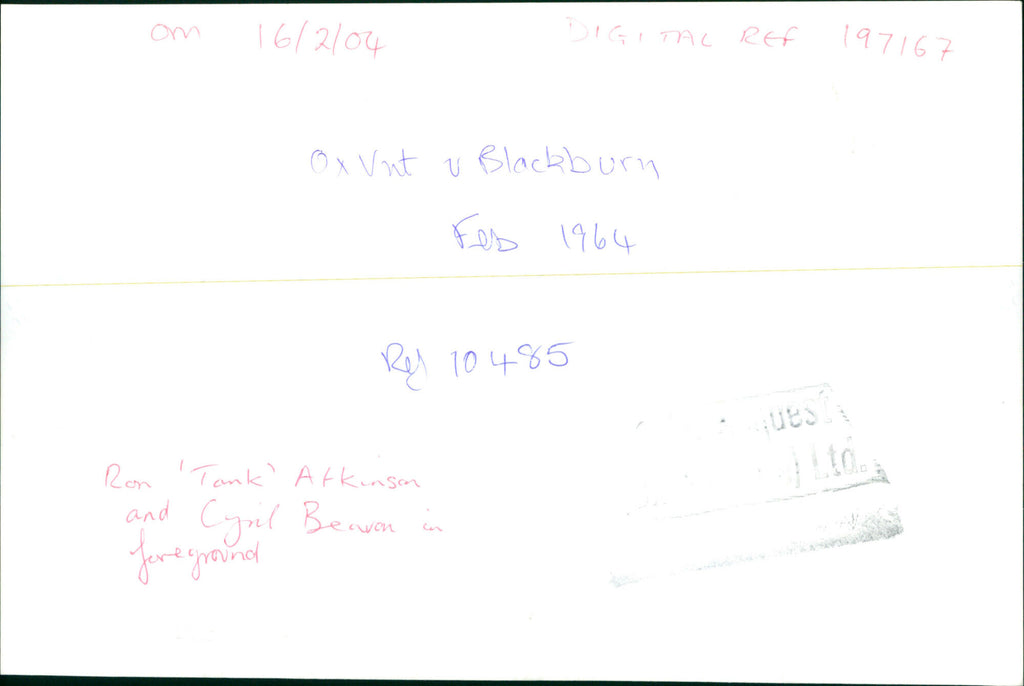 om 16/2/04 DIGITAL REF 197167
Ox Unt v Blackburn
Feb 1964
Ref 10485
Ltd.
Ron 'Tank' Atkinson
and Cyril Beavon in
foreground